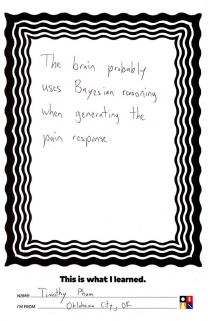 The brain probably
uses Bayesian reasoning
when generating the
pain response.
This is what I learned.
NAME Timothy Pham
I'M FROM Oklahoma City, OK